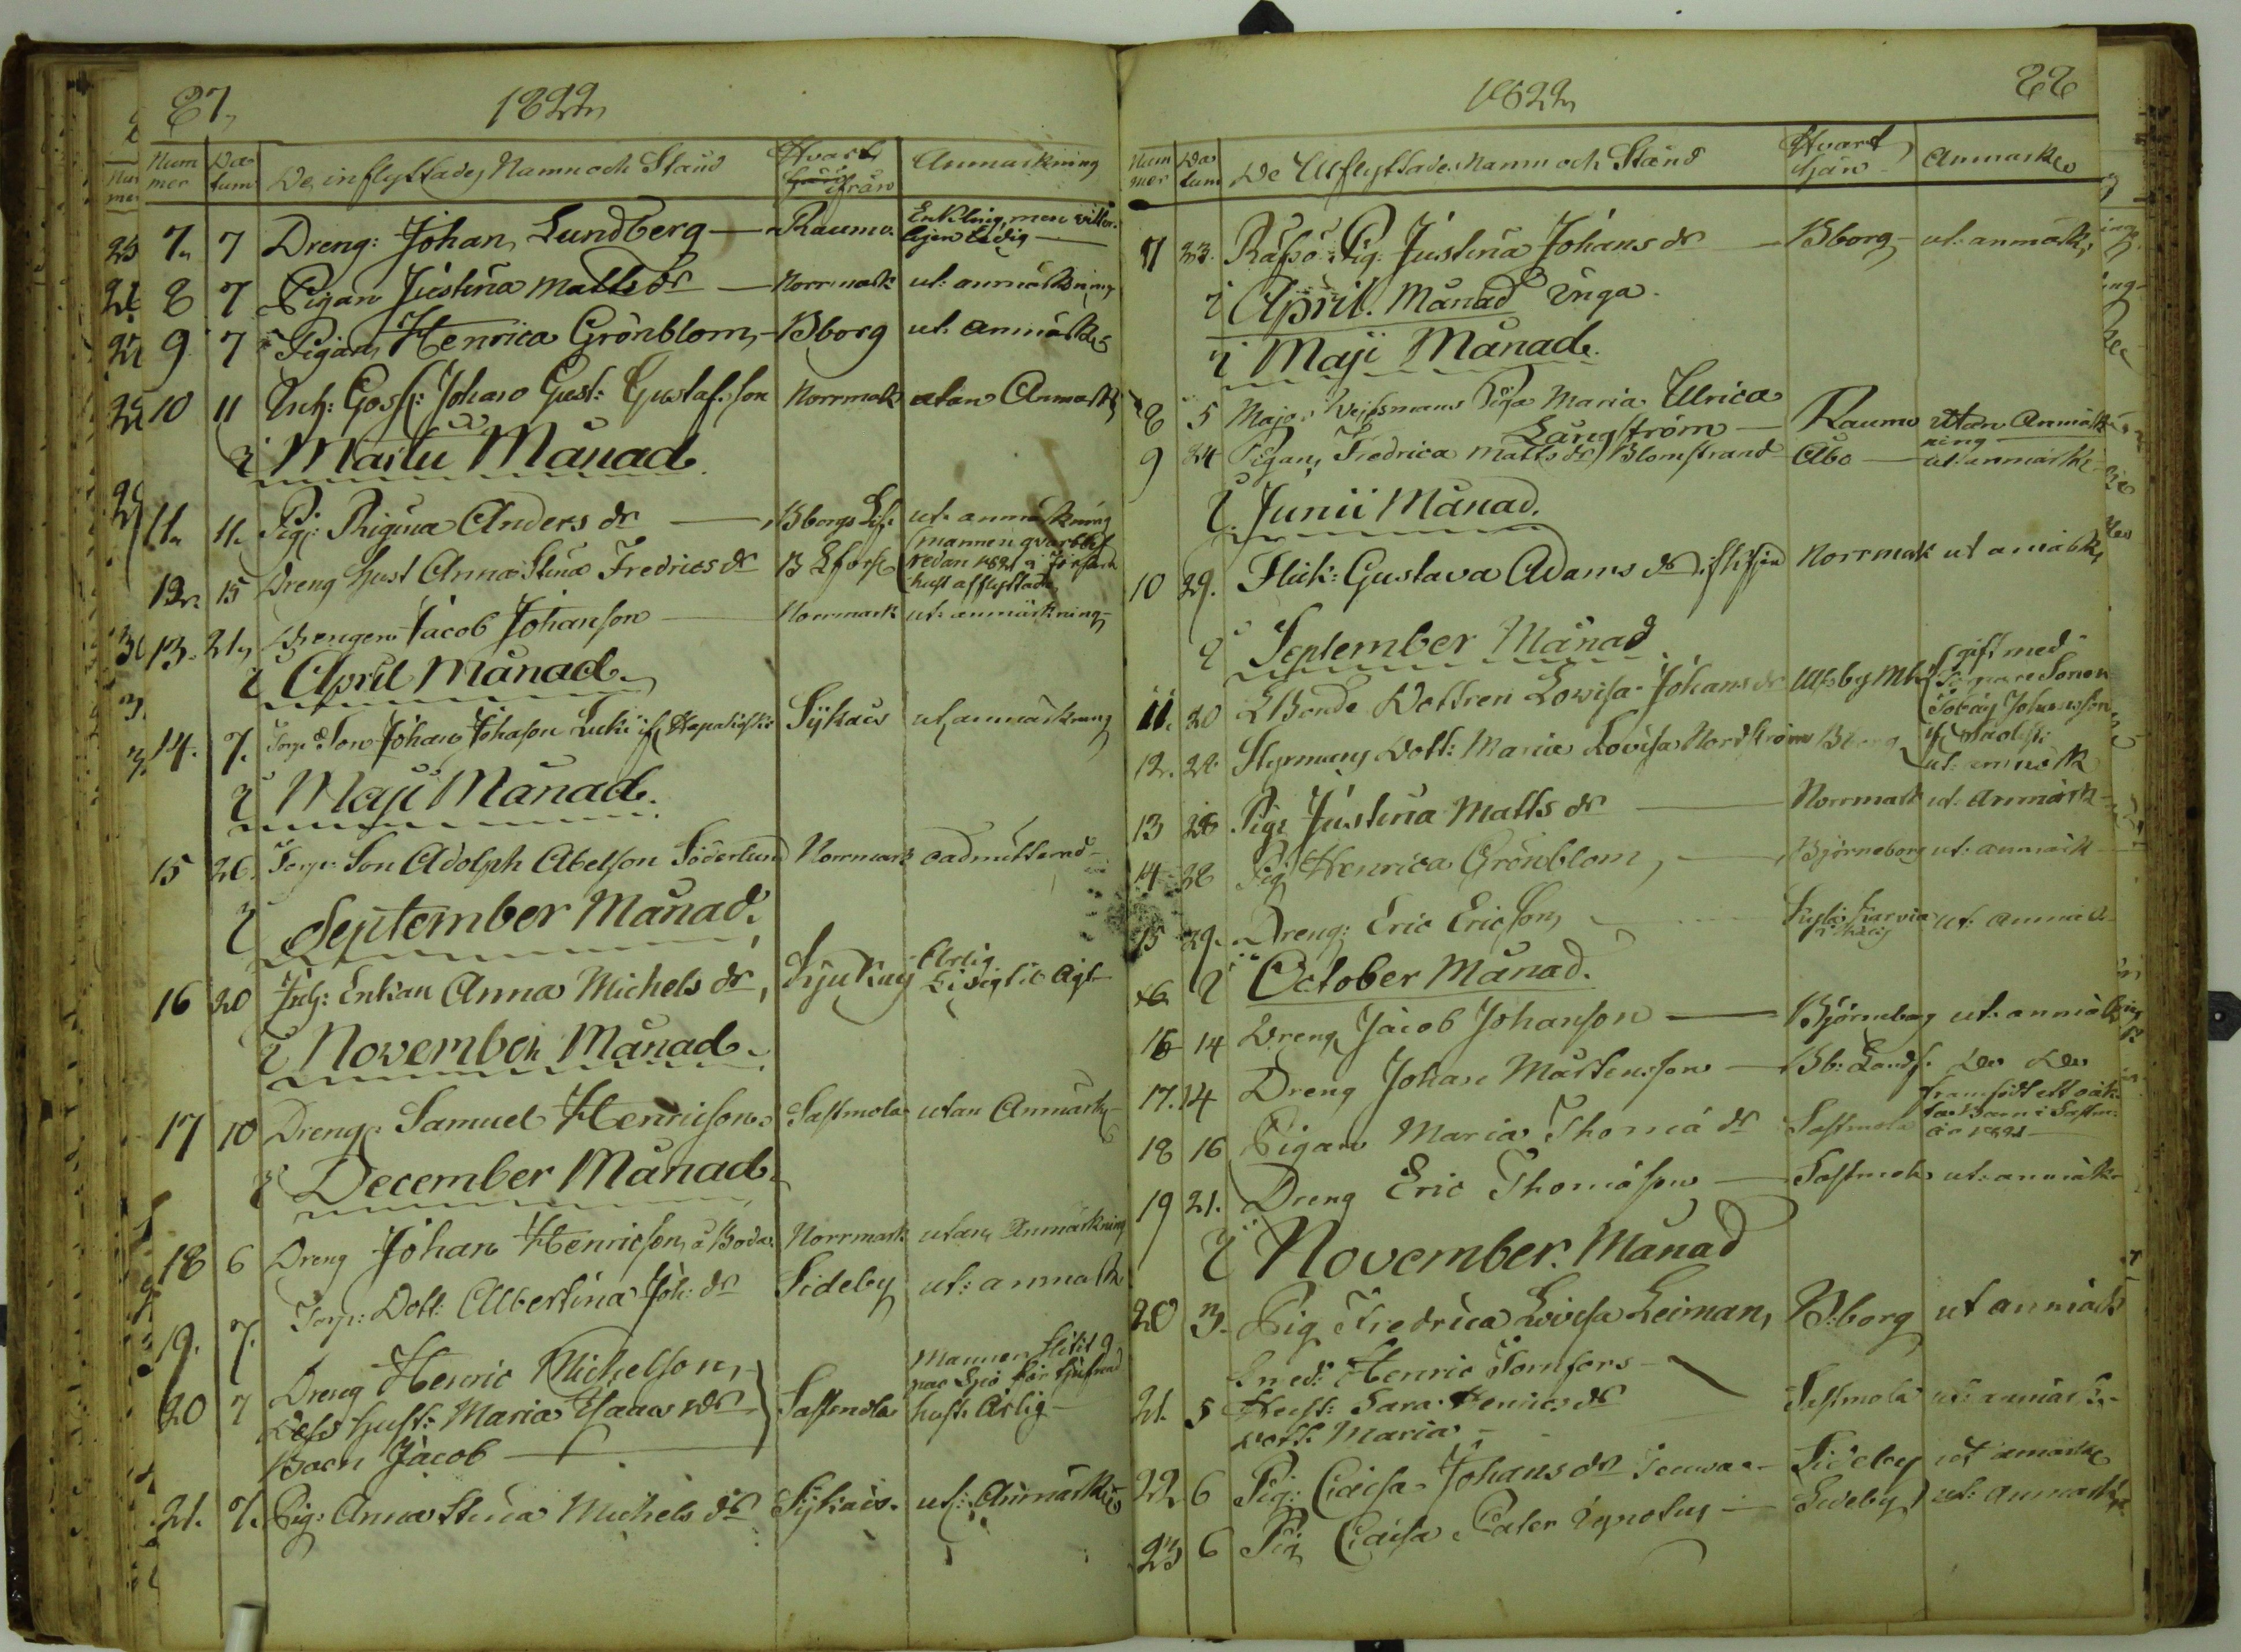 87.
1822
Num
mer
Da
tum
De inflyttades Namn och Stånd
Hvart
ifrån
Anmärkning
7. 7 Dreng: Johan Lundberg — Raumo. Enkling men vitter-
ligen ledig —
8 7 Pigan Justina Matts dr — Norrmark ut: anmärkning
9 7 Pigan Henrica Grönblom, — Bborg ut: anmärk
10 11 Inh: Goss: Johan Gust: Gustafsson Norrmark utan Anmärk
i Martii Månad.
11. 11. Pig: Regina Anders dr — Bborgs ut: anmärkning
12. 15 Dreng hust Anna Stina Fredrics dr mannen qvarblef
redan 1821
hust afflyttade
13. 21. Drengen Jacob Johanson — Norrmark ut: anmärkning
i April Månad.
14. 7. Torp: Son Johan Johanson Sykais ut: anmärkning
i Maji Månad.
15 26. Torp: Son Adolph Abelson Söderlund Norrmark oadmitterad —
i September Månad.
16 20 Inh: Enkan Anna Michels dr, Ärlig
17 10 Dreng: Samuel Henricson Sastmola utan Anmärk
i November Månad.
i December Månad.
18 6 Dreng Johan Henricson, å Boda Norrmark utan Anmärkning
19. 7. Torp: Dott: Albertina Joh: dr Sideby ut: anmärk
20 7 Dreng Henric Michelson,
Dess hust: Maria Isaacs dr
Barn Jacob —
Sastmola
Mannen
för tjufnad
hust. Ärlig —
21. 7. Pig: Anna Stina Michels dr Sykais. ut: Anmärkn
1822
88
Num
mer
Da
tum
De Utflyttades Namn och Stånd
Hvart
Anmärkn
7 23. Räfsö Pig: Justina Johans dr — Bborg — ut: anmärk
i April Månad inga.
i Maji Månad.
8 5 Major Piga Maria Ulrica
Långström — Raumo utan Anmärk
ning
9 24 Pigan Fredrica Matts dr Blomstrand Åbo — ut: anmärkn
i Junii Månad.
10 29. Flick: Gustava Adams dr Norrmark ut anmärk
i September Månad
11. 20 Bonde Dottren Lovisa Johans dr Ulfsby gift med
Sonen
Johansson
12. 28. Styrmans Dott: Maria Lovisa Nordström Bborg ut: anmärk
13 28 Pig: Justina Matts dr — Norrmark ut: Anmärk
14 28 Pig Henrica Grönblom, — Björneborg ut: anmärk
15 29. Dreng: Eric Ericson, ut: anmärk
i October Månad.
16 14 Dreng Jacob Johanson — Björneborg ut: anmärkn
17. 14 Dreng Johan Mårtensson — Bb: Lands. Do Do
18 16 Pigan Maria Thomä dr Sastmola framfödt ett oäk
ta Barn i Sastm:
år 1821 —
19 21. Dreng Eric Thomäson — Sastmola ut: anmärkn
i November. Månad
20 3. Pig Fredrica Lovisa Leiman, B:borg ut anmärk
21. 5 Smed: Henric Tornfors —
Hust: Sara Henrics dr
dott: Maria —
Sastmola ut: anmärk
22 6 Pig: Caisa Johans dr Sideby ut anmärk
23 6 Pig Caisa — Sideby ut: anmärk